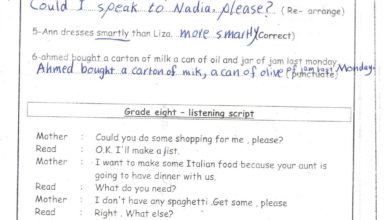 Could I speak to Nadia, please? (Re- arrange)
5-Ann dresses smartly than Liza. more smartly (correct)
6-ahmed bought a carton of milk a can of oil and jar of jam last monday
Ahmed bought a carton of milk, a can of olive of jam last Monday. (punctuate)
Grade eight – listening script
Mother : Could you do some shopping for me , please?
Read : O.K. I'll make a list.
Mother : I want to make some Italian food because your aunt is
going to have dinner with us.
Read : What do you need?
Mother : I don't have any spaghetti .Get some , please
Read : Right . What else?